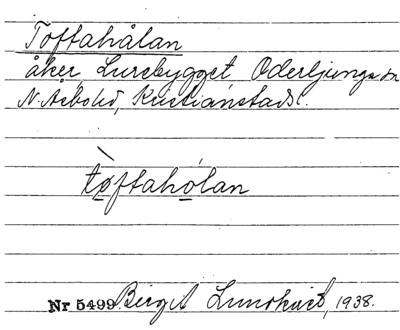 Toftahålan
åker, Lurebygget Oderljunga sn
N. Åsbo hd, Kristianstads l.
tøftahólan
Nr 5499 Birgit Lundkvist, 1938.